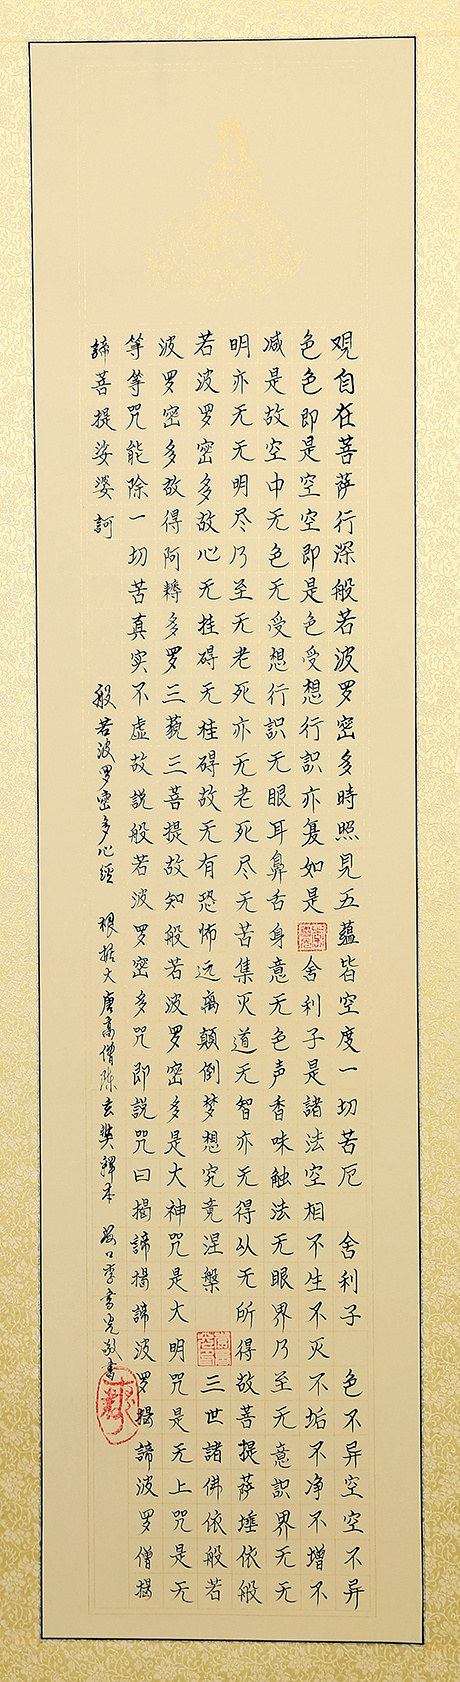 观自在菩萨行深般若波罗密多時照見五蕴皆空度一切苦厄 舍利子 色不异空空不异
色色即是空空即是色受想行識亦复如是 舍利子是諸法空相不生不灭不垢不净不增不
减是故空中无色无受想行識无眼耳鼻舌身意无色声香味触法无眼界乃至无意識界无无
明亦无无明尽乃至无老死亦无老死尽无苦集灭道无智亦无得以无所得故菩提萨埵依般
若波罗密多故心无挂碍无挂碍故无有恐怖远离顛倒梦想究竟涅槃 三世諸佛依般若
波罗密多故得阿耨多罗三藐三菩提故知般若波罗密多是大神咒是大明咒是无上咒是无
等等咒能除一切苦真实不虚故説般若波罗密多咒即説咒曰揭諦揭諦波罗揭諦波罗僧揭
諦菩提娑婆訶
般若波罗密多心經 根据大唐高僧陈玄奘釋本 海口李 敬書